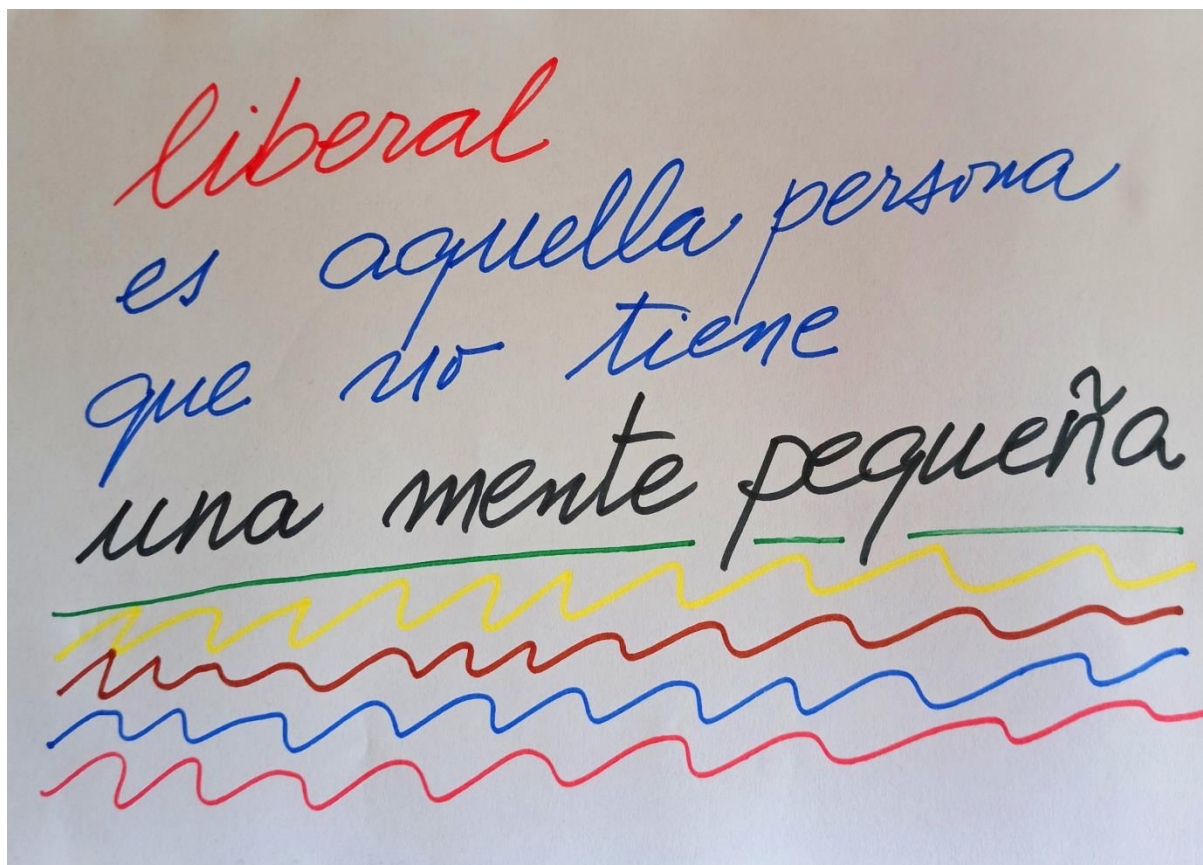 liberal
es aquella persona
que no tiene
una mente pequeña